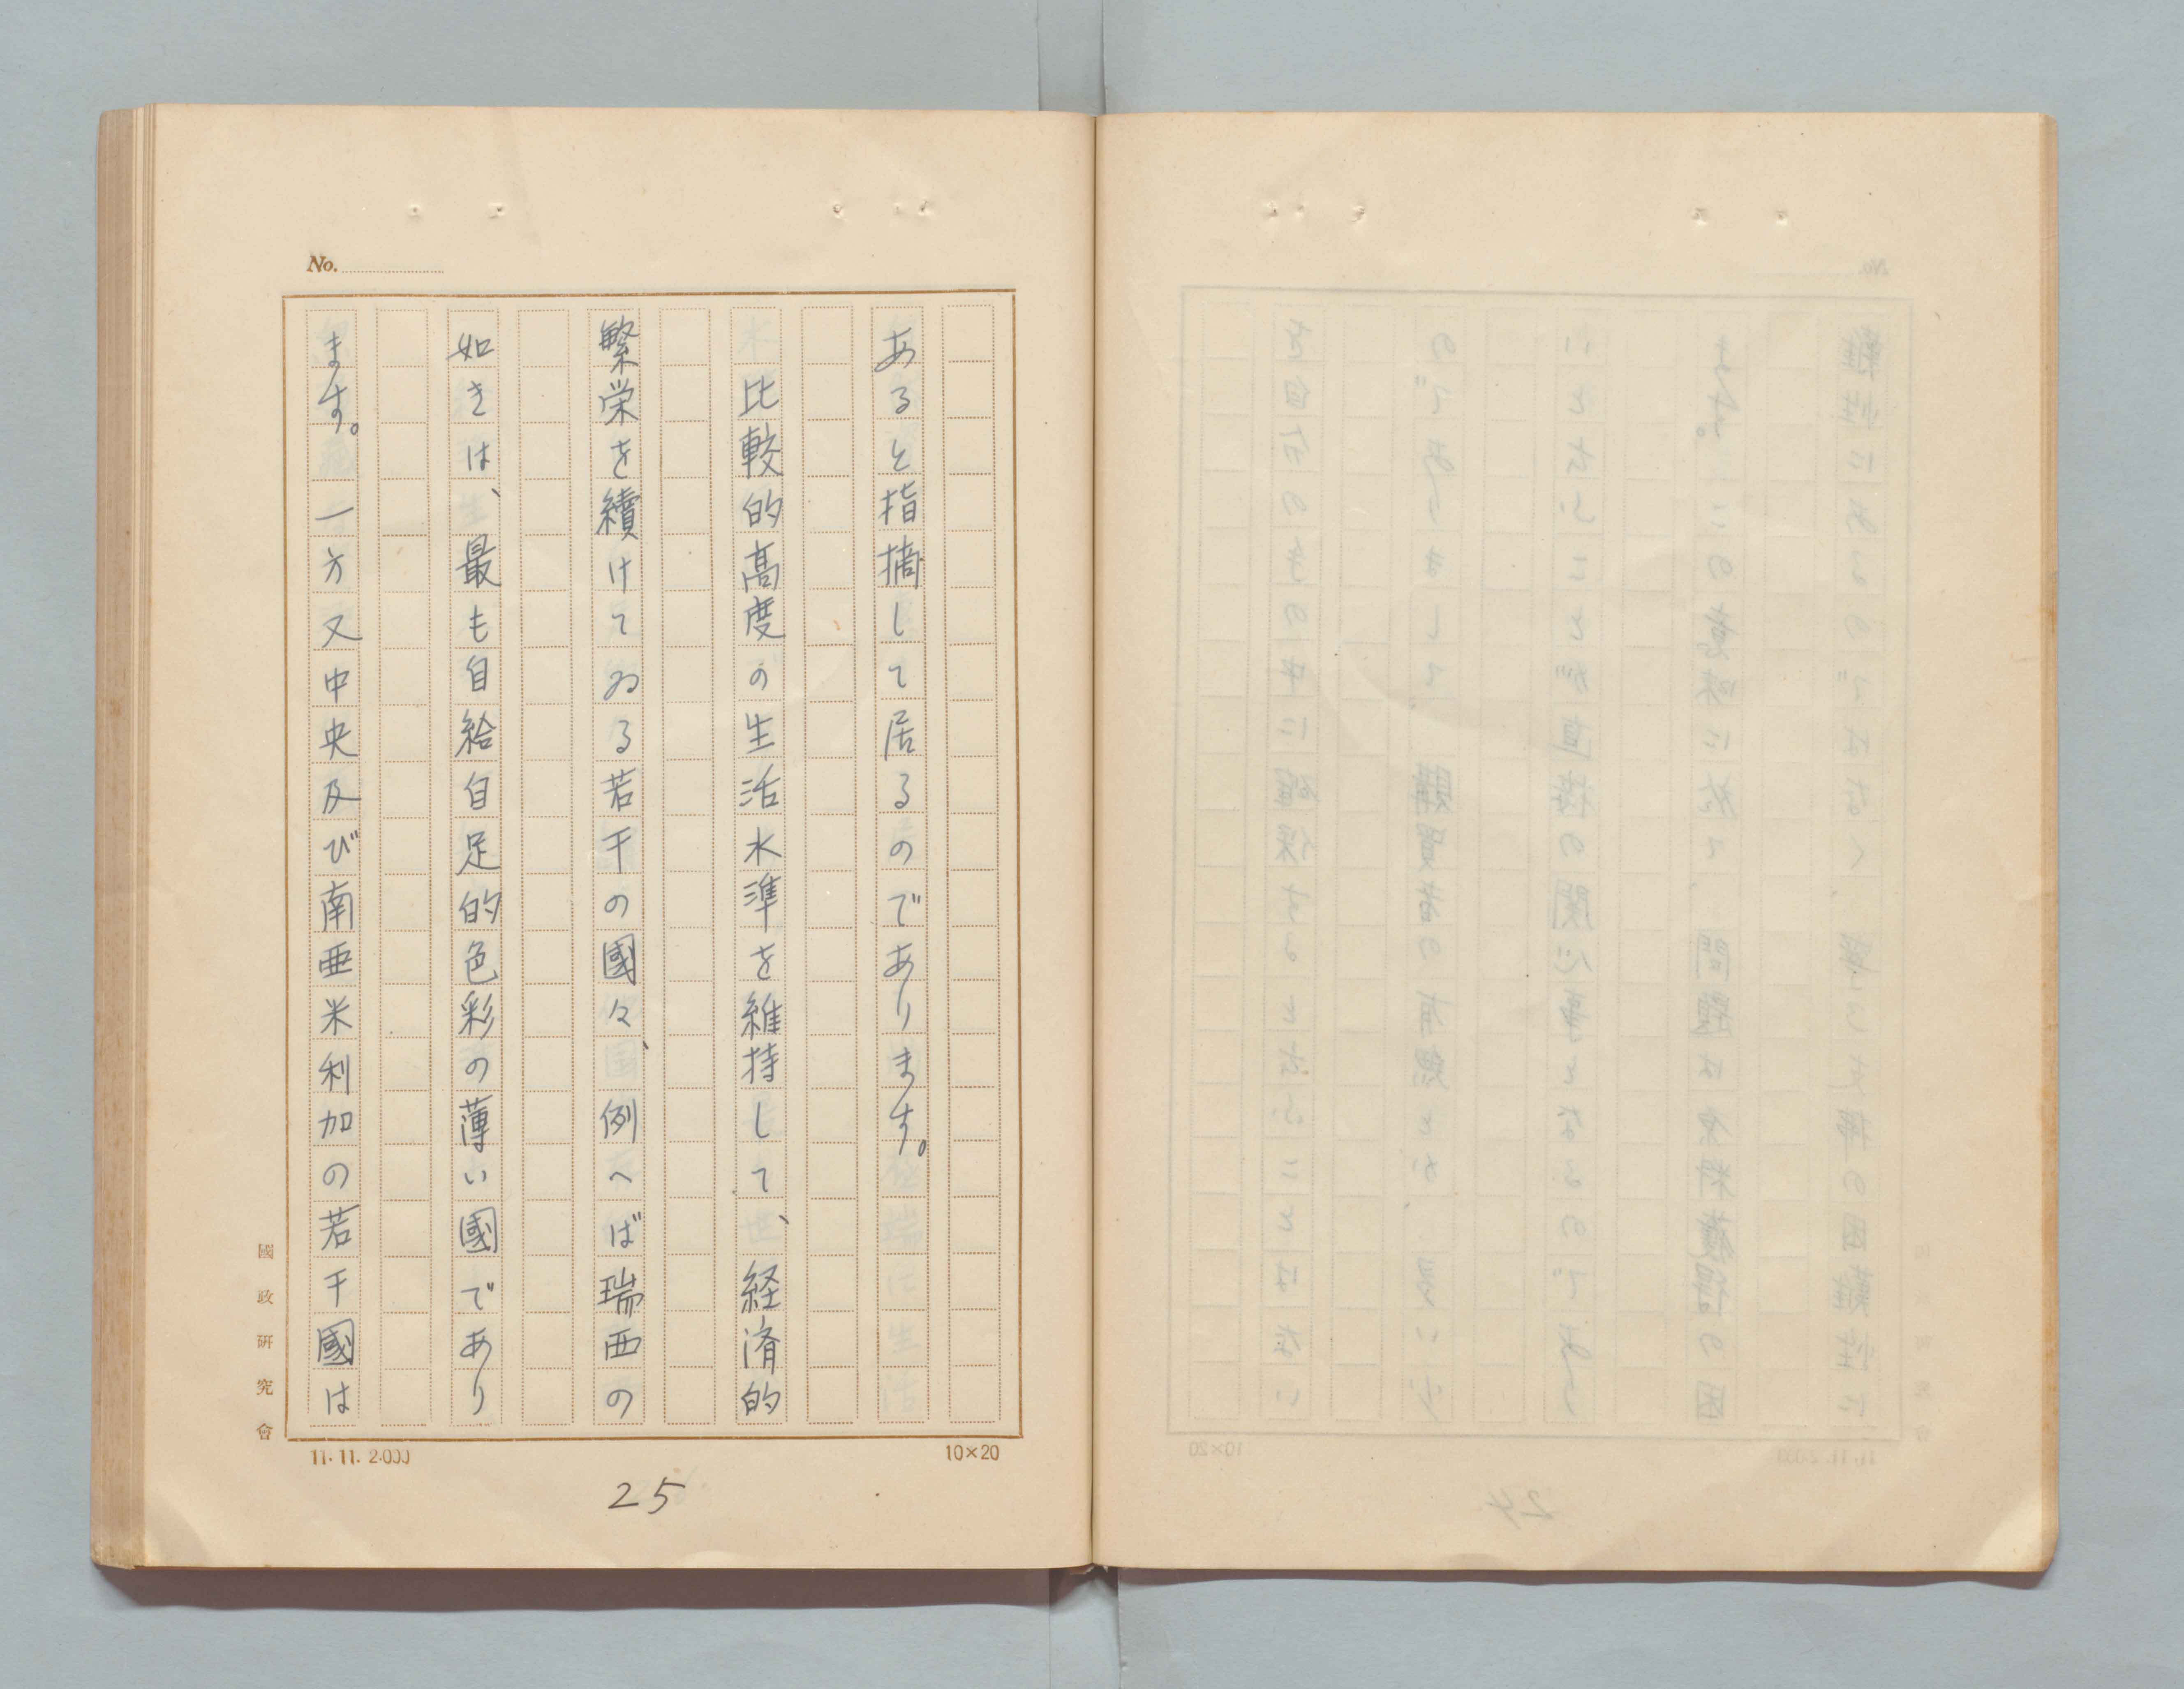 No.
あると指摘して居るのであります。
比較的高度の生活水準を維持して、経済的
繁栄を續けてゐる若干の國々、例へば瑞西の
如きは、最も自給自足的色彩の薄い國であり
ます。一方又中央及び南亜米利加の若干國は
國政研究會
11.11.2.000
10×20
25